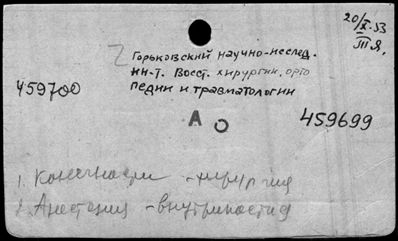 20/X-53
III Я.
Горьковский научно-исслед.
ин-т. Восст. хирургии, орто
педии и травматологии
459700
А О
459699
1. Конечности - хирургия
2. Анестезия - внутрикостная